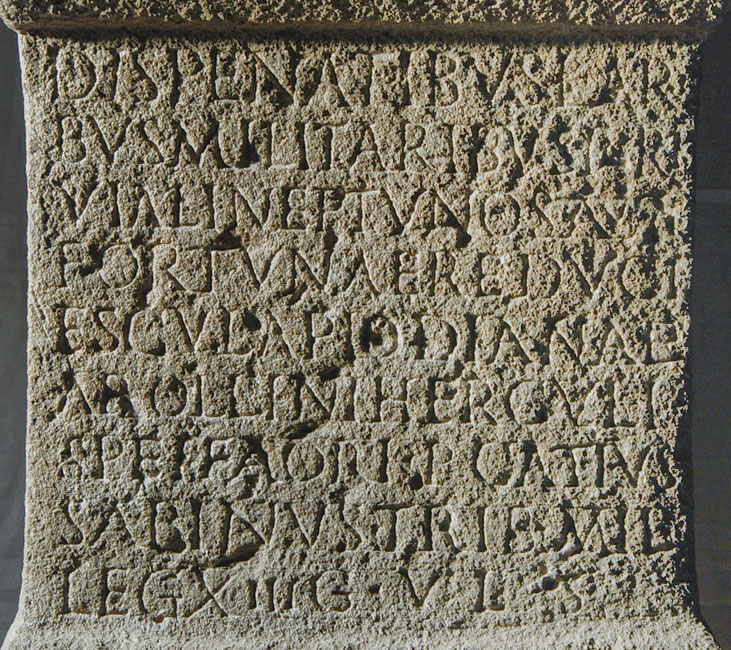 DIS PENATIBVS LARI
BVS MILITARIBVS LARI
VIALI NEPTVNO SALVTI
FORTVNAE REDVCI
ESCVLAPIO DIANAE
APOLLINI HERCVLI
SPEI FAORI P CATIVS
SABINVS TRIB MIL
LEG XIII G V L S